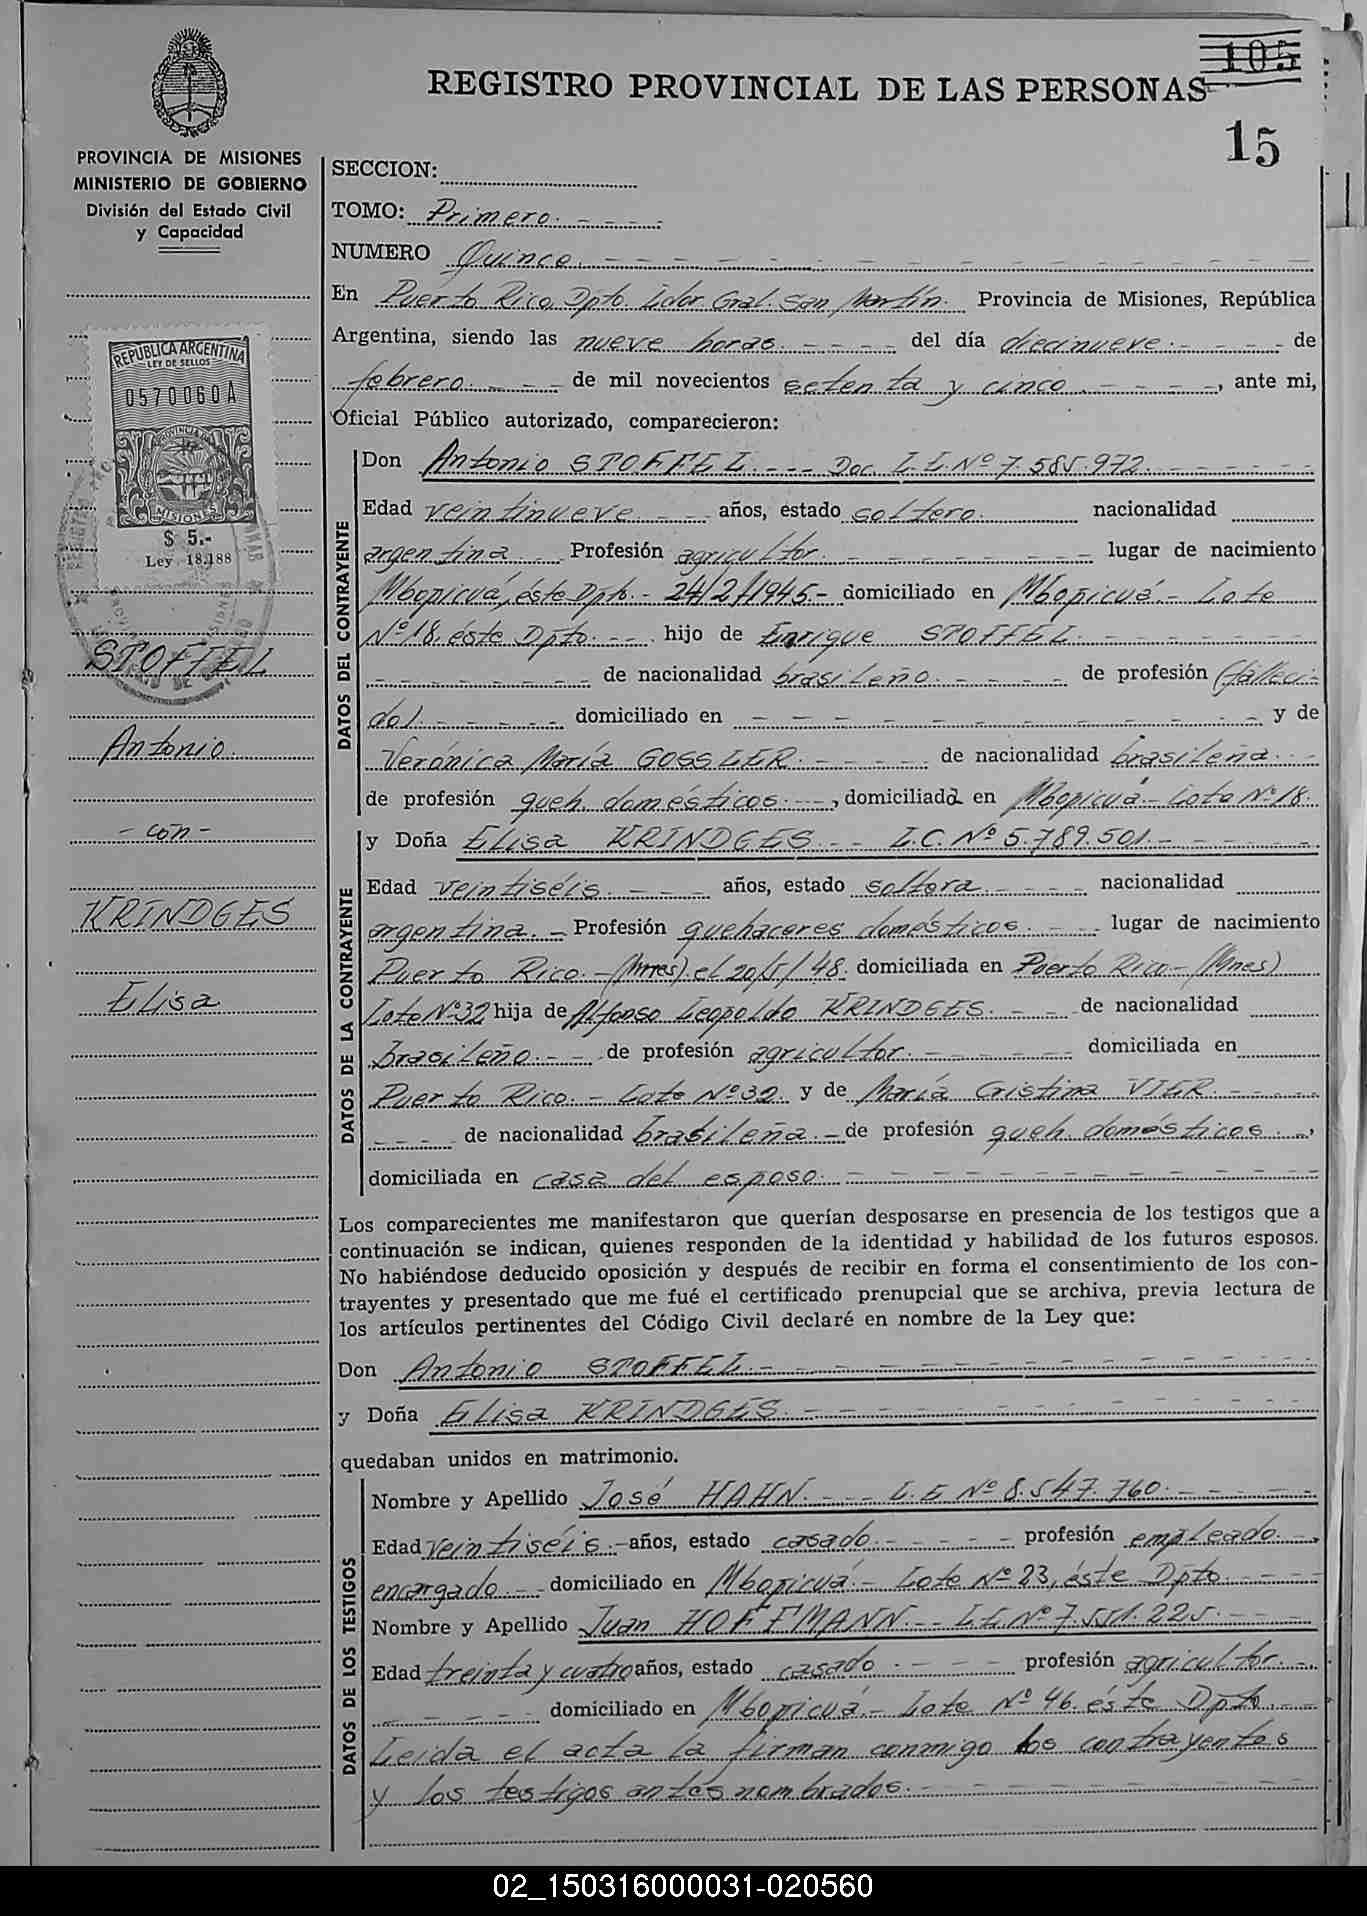 105
REGISTRO PROVINCIAL DE LAS PERSONAS
15
PROVINCIA DE MISIONES
MINISTERIO DE GOBIERNO
División del Estado Civil
y Capacidad
REPUBLICA ARGENTINA
LEY DE SELLOS
0570060A
PROVINCIA DE
MISIONES
$ 5.-
Ley 18.188
STOFFEL
Antonio.
- con -
KRINDGES
Elisa
SECCION:
TOMO: Primero.
NUMERO Quince.
En Puerto Rico, Dpto. Ldor. Gral. San Martín. Provincia de Misiones, República
Argentina, siendo las nueve horas. del día diecinueve. de
febrero. de mil novecientos setenta y cinco, ante mi,
Oficial Público autorizado, comparecieron:
DATOS DEL CONTRAYENTE
Don Antonio STOFFEL. Doc. L.E. Nº 7.585.972.
Edad veintinueve años, estado soltero. nacionalidad
argentina. Profesión agricultor. lugar de nacimiento
Mbopicuá, éste Dpto. - 24/2/1945.- domiciliado en Mbopicuá.- Lote
Nº 18, éste Dpto. hijo de Enrique STOFFEL.
de nacionalidad brasileño. de profesión (falleci-
do). domiciliado en y de
Verónica María GOSSLER. de nacionalidad brasileña.
de profesión queh. domésticos. , domiciliada en Mbopicuá - Lote Nº 18.
DATOS DE LA CONTRAYENTE
y Doña Elisa KRINDGES. L.C. Nº 5.789.501.
Edad veintiséis. años, estado soltera. nacionalidad
argentina. - Profesión quehaceres domésticos. lugar de nacimiento
Puerto Rico.-(Mnes). el 20/5/48. domiciliada en Puerto Rico-(Mnes)
Lote Nº 32 hija de Alfonso Leopoldo KRINDGES. de nacionalidad
brasileño. de profesión agricultor. domiciliada en
Puerto Rico. - Lote Nº 32 y de María Cristina VIER.
de nacionalidad brasileña. - de profesión queh. domésticos. ,
domiciliada en casa del esposo.
Los comparecientes me manifestaron que querían desposarse en presencia de los testigos que a
continuación se indican, quienes responden de la identidad y habilidad de los futuros esposos.
No habiéndose deducido oposición y después de recibir en forma el consentimiento de los con-
trayentes y presentado que me fué el certificado prenupcial que se archiva, previa lectura de
los artículos pertinentes del Código Civil declaré en nombre de la Ley que:
Don Antonio STOFFEL.
y Doña Elisa KRINDGES.
quedaban unidos en matrimonio.
DATOS DE LOS TESTIGOS
Nombre y Apellido José HAHN. L.E Nº 8.547.760.
Edad veintiséis.- años, estado casado. profesión empleado.
encargado. domiciliado en Mbopicuá.- Lote Nº 23, éste Dpto.
Nombre y Apellido Juan HOFFMANN. L.E. Nº 7.551.225.
Edad treinta y cuatro años, estado casado. profesión agricultor.
domiciliado en Mbopicuá.- Lote Nº 46. éste Dpto.
Leida el acta la firman conmigo los contrayentes
y los testigos antes nombrados.
02_150316000031-020560